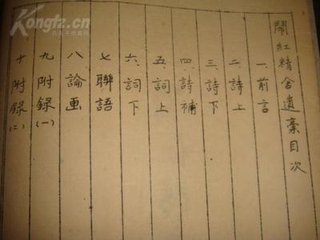 Kongfz.cn
鬧紅精舍遺稾目次
一、前言
二、詩上
三、詩下
四、詩補
五、詞上
六、詞下
七、聯語
八、論画
九、附錄(一)
十、附錄(二)